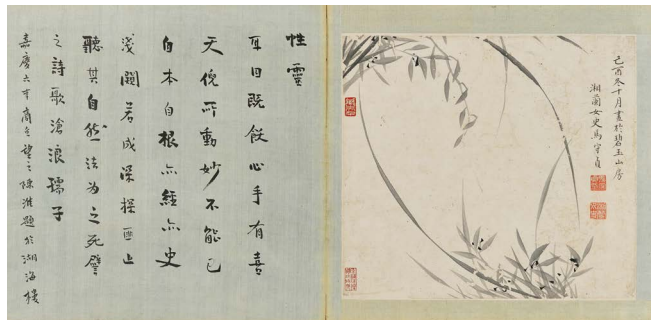 己酉冬十月畫於碧玉山房
湘蘭女史馬守貞
性靈
耳目既飫心手有喜
天倪所動妙不能已
自本自根亦經亦史
淺闚若成深探匪止
聽其自然法為之死譬
之詩歌滄浪孺子
嘉慶六年商望陳淮題於湖海樓